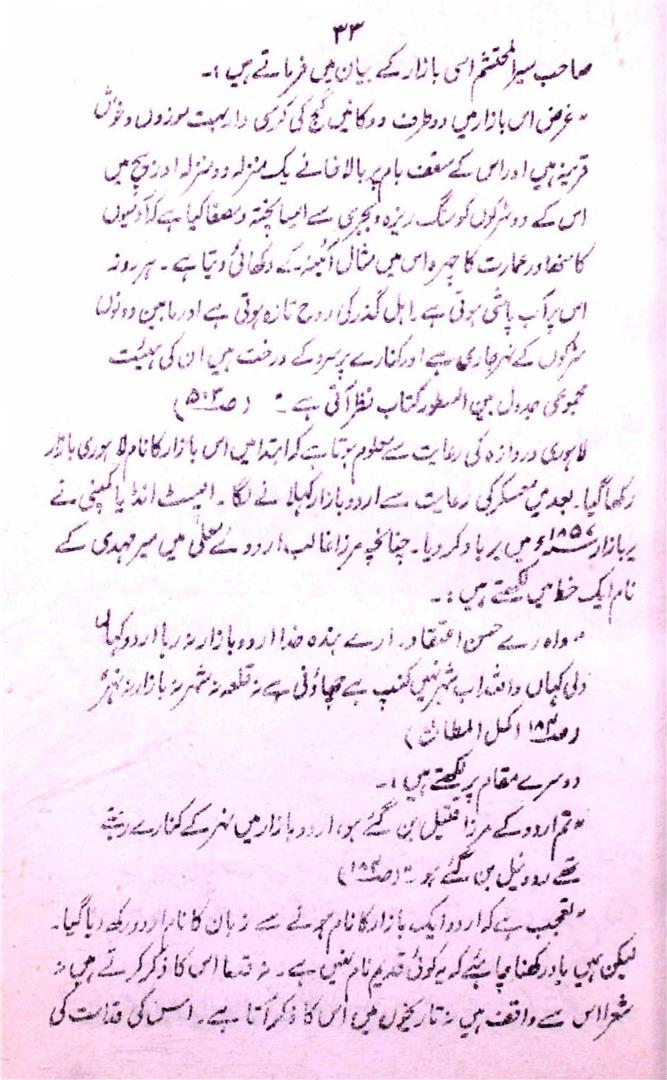 ۳۳
صاحب سیر المحتشم اسی بازار کے بیان میں فرماتے ہیں :۔
"غرض اس بازار میں دو طرفہ دوکانیں گچ کی کرسی دار بہت موزوں و خوش
قرینہ ہیں اور اس کے سقف بام پر بالا خانے یک منزلہ دو منزلہ اور بیچ میں
اس کے دو سڑکوں کو سنگ ریزہ و بجری سے ایسا پختہ و مصفا کیا ہے کہ آدمیوں
کا منھ اور عمارت کا چہرہ اس میں مثال آئینہ کے دکھائی دیتا ہے ۔ ہر روز
اس پر آب پاشی ہوتی ہے ۔ اہل گذر کی روح تازہ ہوتی ہے اور مابین دونوں
سڑکوں کے نہر جاری ہے اور کنارے پر سرو کے درخت ہیں ان کی ہیئت
مجموعی جدول بین السطور کتاب نظر آتی ہے ۔" (صـ۵۱۳)
لاہوری دروازہ کی رعایت سے معلوم ہوتا ہے کہ ابتدا میں اس بازار کا نام لاہوری بازار
رکھا گیا ۔ بعد میں معسکر کی رعایت سے اردو بازار کہلانے لگا ۔ ایسٹ انڈیا کمپنی نے
یہ بازار ۱۸۵۷ء میں برباد کر دیا ۔ چنانچہ مرزا غالب اردوئے معلیٰ میں میر مہدی کے
نام ایک خط میں لکھتے ہیں :۔
"واہ رے حسن اعتقاد ۔ ارے بندہ خدا اردو بازار نہ رہا اردو کہاں
دلی کہاں واللہ اب شہر نہیں کنپ ہے چھاؤنی ہے نہ قلعہ نہ شہر نہ بازار نہ نہر"
(صـ۱۸۳ اکمل المطابع)
دوسرے مقام پر لکھتے ہیں :۔
"تم اردو کے مرزا قتیل بن گئے ہو، اردو بازار میں نہر کے کنارے رہتے
تھے رود نیل بن گئے ہو ۔" (صـ۱۸۲)
"تعجب ہے کہ اردو ایک بازار کا نام ہونے سے زبان کا نام اردو رکھ دیا گیا ۔
لیکن ہمیں یاد رکھنا چاہئے کہ یہ کوئی قدیم نام نہیں ہے ۔ نہ قدما اس کا ذکر کرتے ہیں نہ
شعرا اس سے واقف ہیں نہ تاریخوں میں اس کا ذکر آتا ہے ۔ اس کی قدامت کی